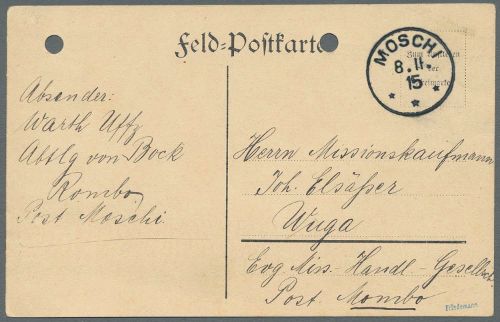 Feld-Postkarte
MOSCHI
8. II.
15
Zum Aufkleben
der
Freimarke
Absender:
Warth Uffz
Abtlg von Bock
Rombo
Post Moschi
Herrn Missionskaufmann
Joh. Elsäßer
Wuga
Evg Miss- Handl- Gesellsch
Post Mombo
Friedemann